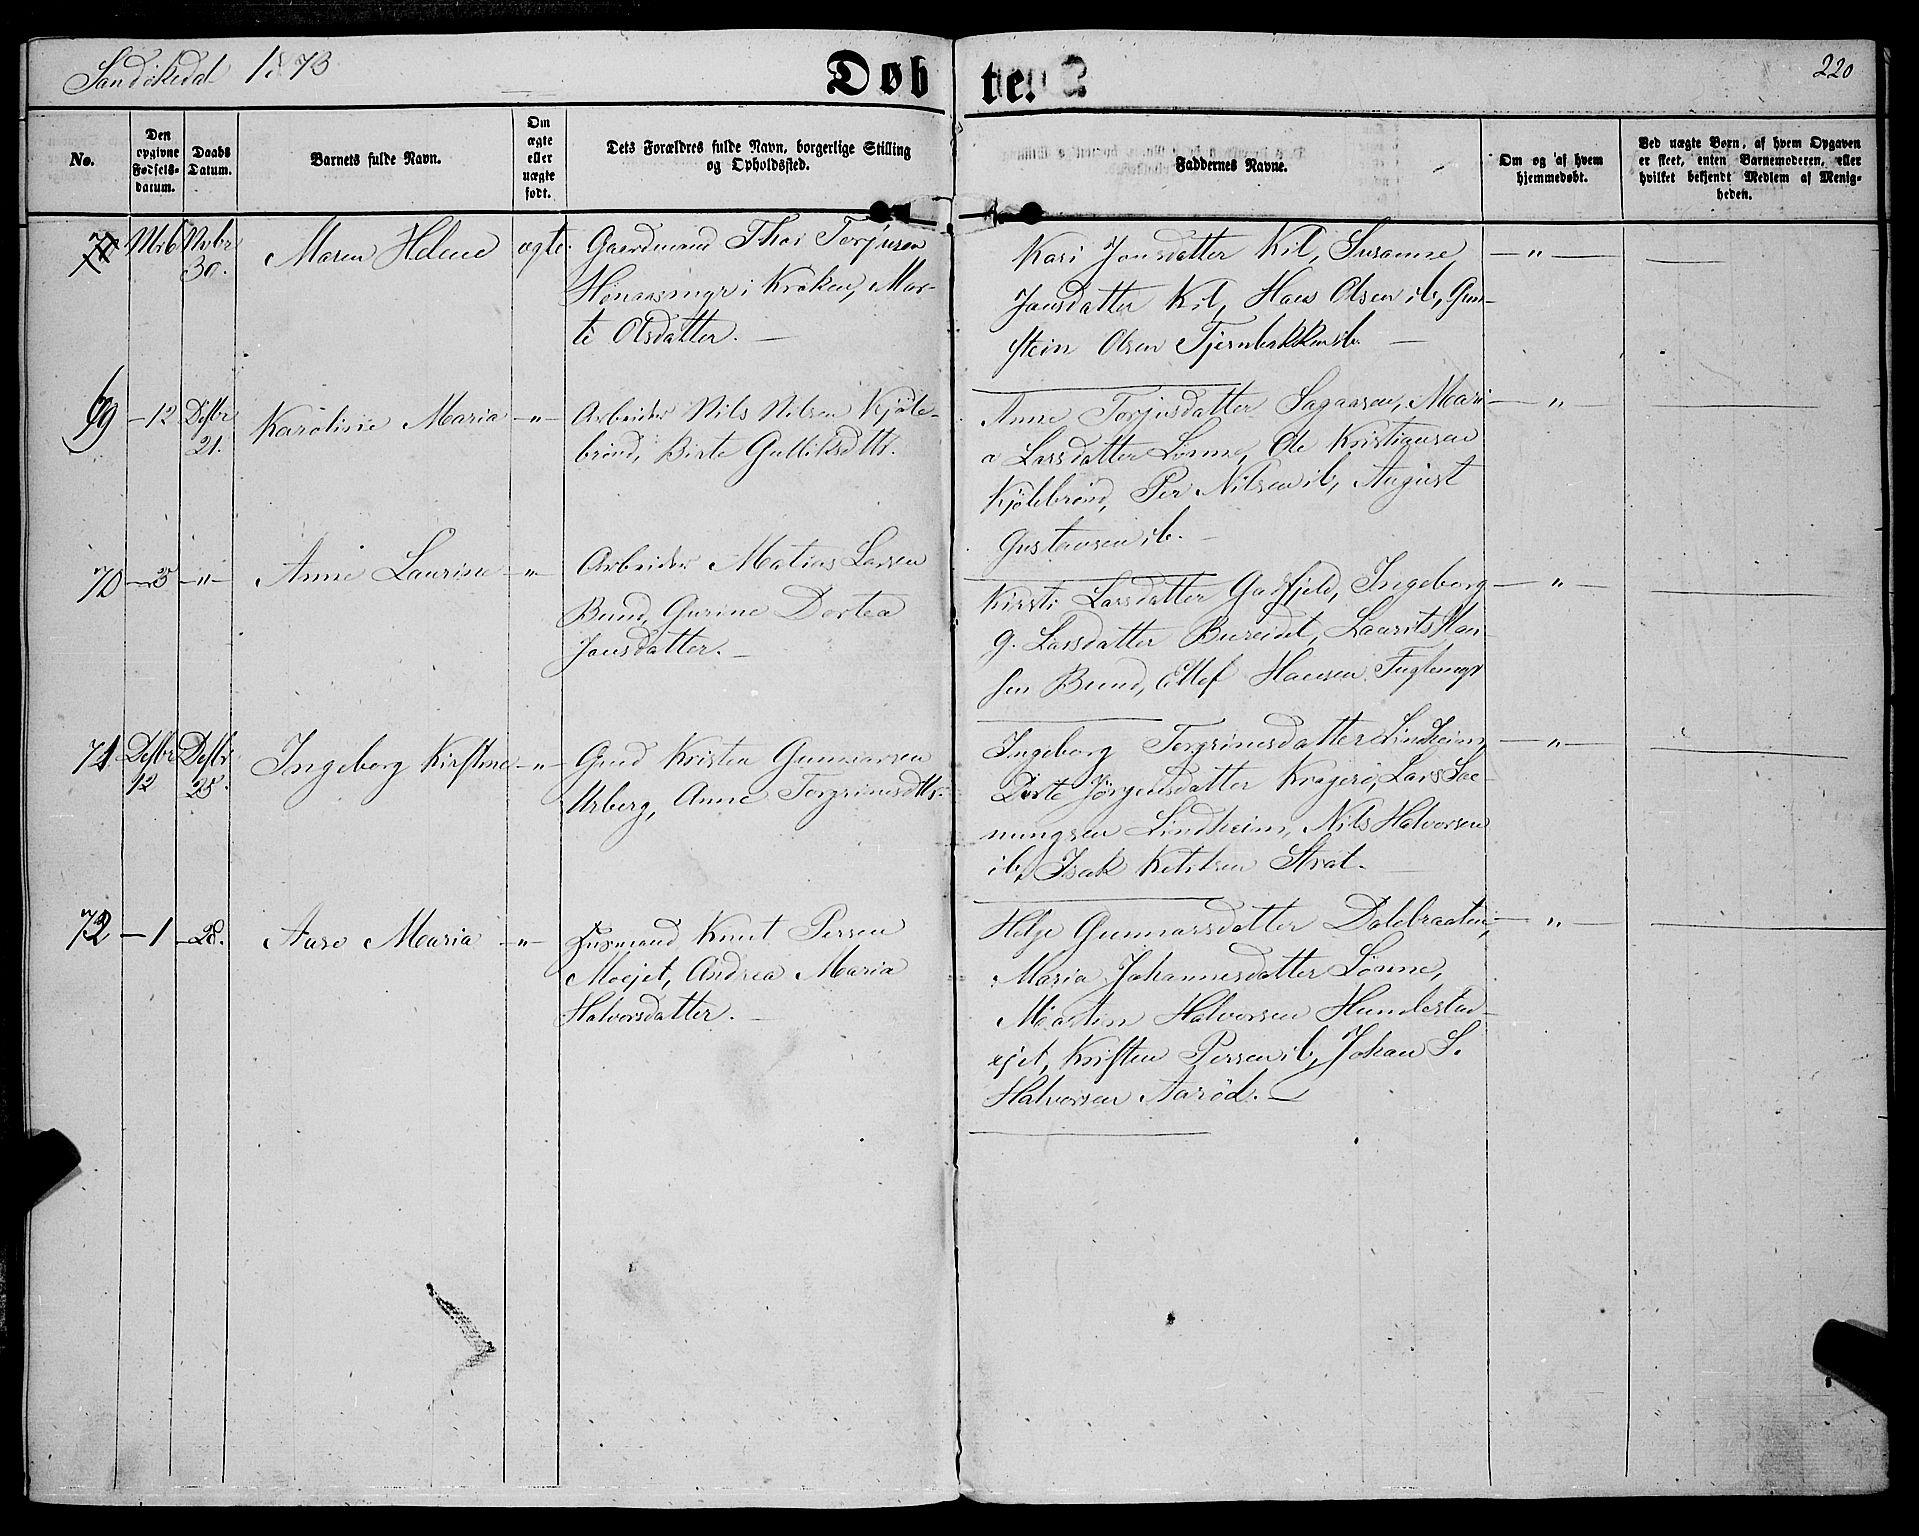 Sandökedal 1873
Døb te.
220
No.
Den opgivne Fødsels-datum.
Daabs Datum.
Barnets fulde Navn.
Om ægte eller uægte født.
Dets Forældres fulde Navn, borgerlige Stilling og Opholdssted.
Faddernes Navne.
Om og af hvem hjemmedøbt.
Ved uægte Børn, af hvem Opgaven er skeet, enten Barnemoderen, eller hvilket bekjendt Medlem af Menigheden.
Nvbr 30.
Maren Helene
ægte
Gaardmand Thor Torjusen
i Kroken, Mar-
te Olsdatter. —
Kari Jansdatter Kil, Susanne
Jansdatter Kil, Hans Olsen ib, Gun-
stein Olsen Tjernbakken ib. —
— " —
69 — 12 Dsbr 21.
Karoline Maria — " —
Arbeider Nils Nilsen Kjöle-
brönd, Birte Gulliksdttr.
Anne Torjusdatter Sagaasen, Mari-
a Larsdatter Lönne, Ole Kristiansen
Kjölebrönd, Per Nilsen ib, August
Gustavsen ib. —
— " —
70 — 5 — " —
Anne Laurine — " —
Arbeider Matias Larsen
Bund, Gurine Dortea
Jansdatter. —
Kirsti Larsdatter Gasfjeld, Ingeborg
G. Larsdatter Bureidet, Laurits Han-
sen Bund, Ellef Hansen Fuglemyr
— " —
71 Dsbr 12 Dsbr 25.
Ingeborg Kirstine — " —
Gmd Kristen Gunnarsen
Urberg, Anne Torgrimsdttr.
Ingeborg Torgrimsdatter Lindheim,
Dorte Jörgensdatter Kragerö, Lars Sae-
mungsen Lindheim, Nils Halvorsen
ib, Isak Ketilsen Strat.
— " —
72 — 1 — 28.
Aase Maria — " —
Husmand Knut Persen
Moejet, Andrea Maria
Halvorsdatter. —
Helje Gunnarsdatter Dalebraaten,
Maria Johannesdatter Lönne,
Martin Halvorsen Hundestad-
ejet, Kristen Persen ib, Johan S.
Halvorsen Aaröd. —
— " —